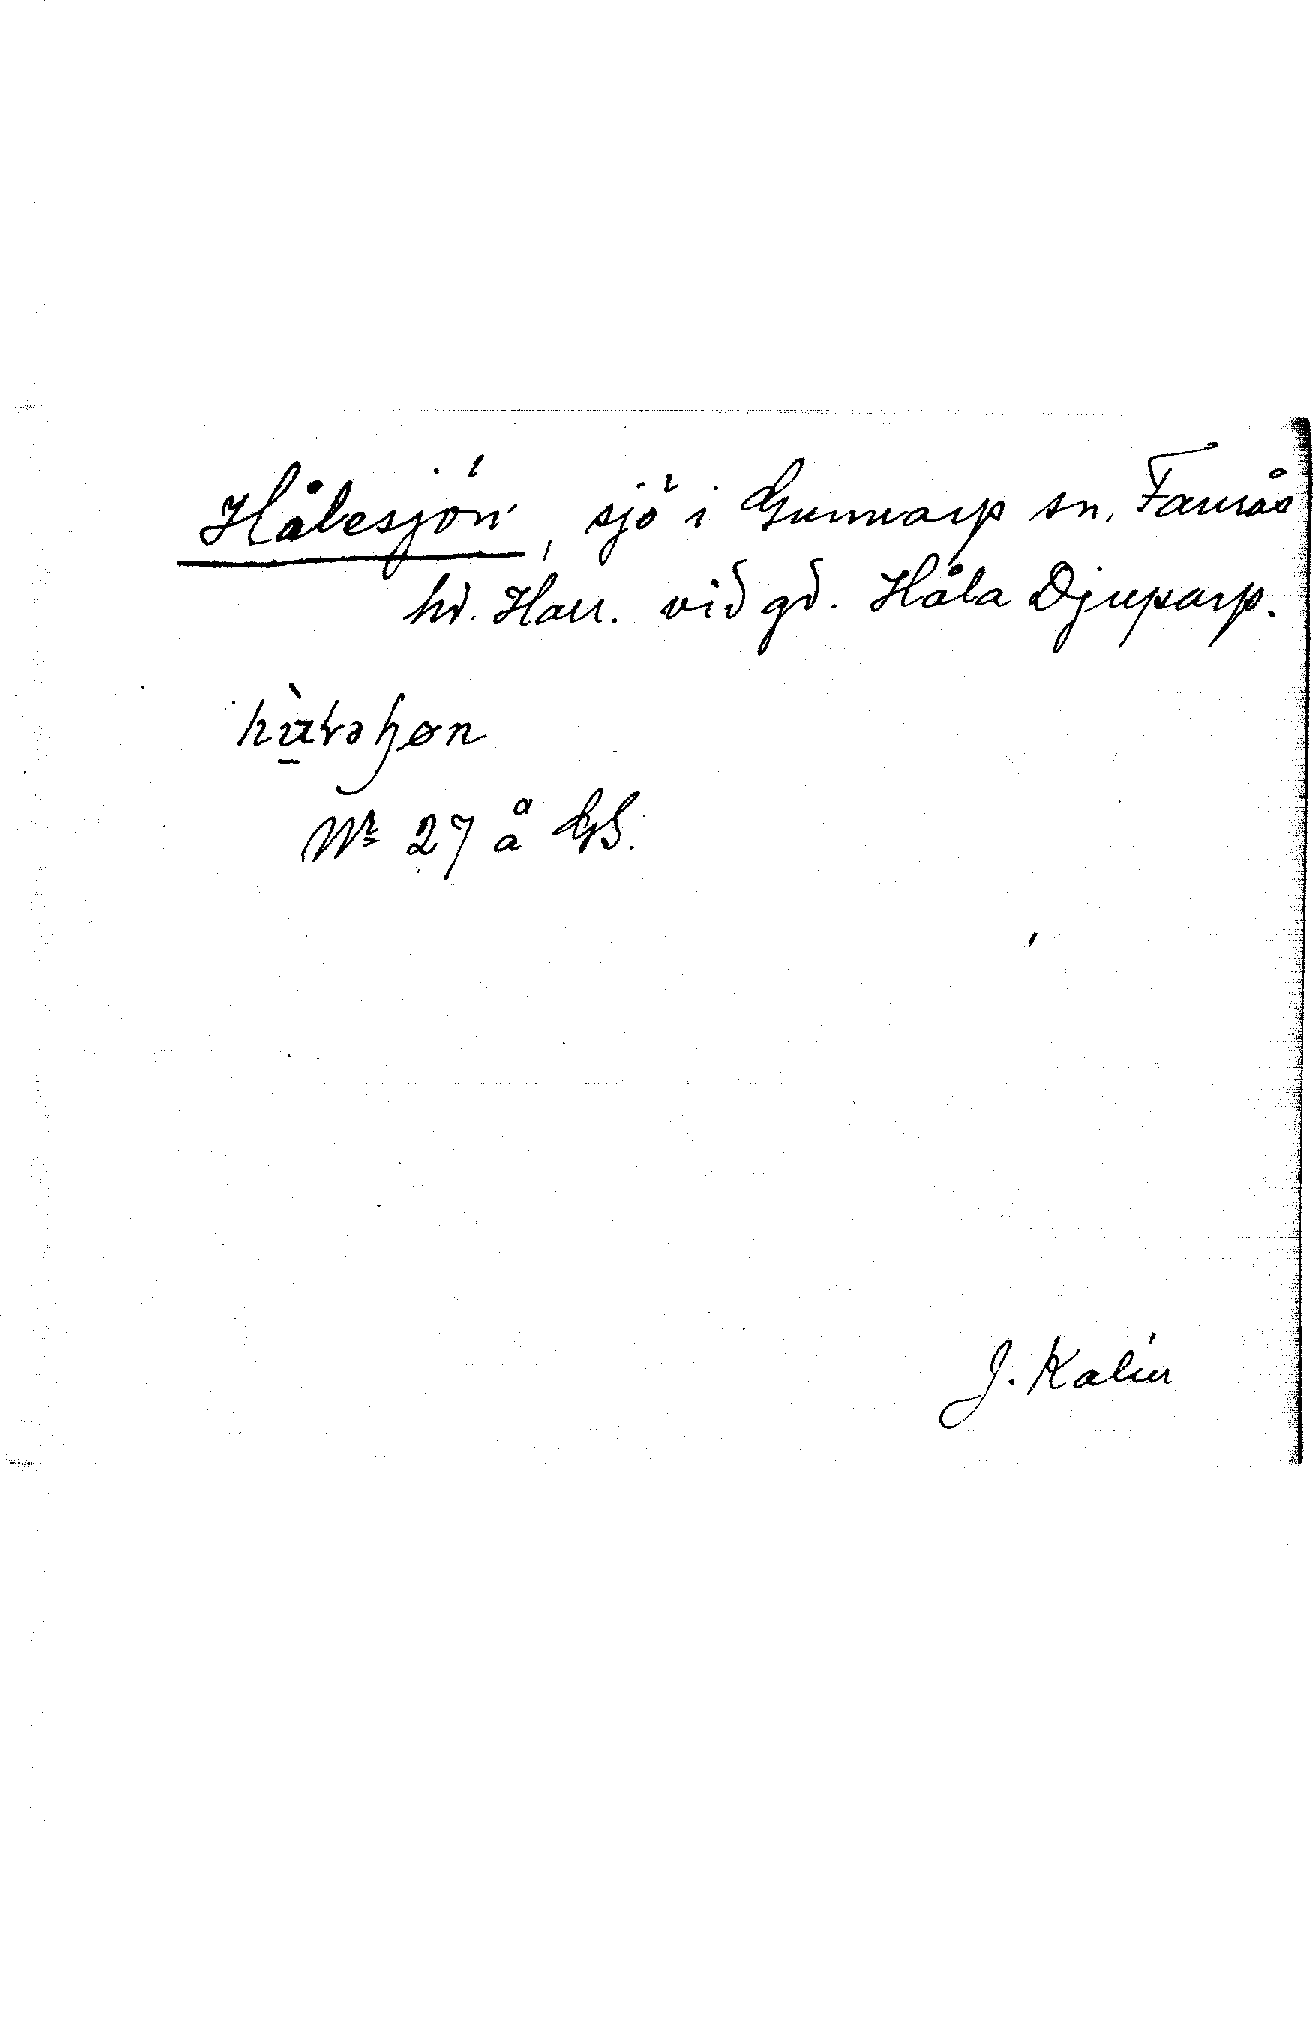 Hålesjön, sjö i Gunnarp sn, Faurås
hd. Hall. vid gd. Håla Djuparp.
Nr 27 å GS.
J. Kalin